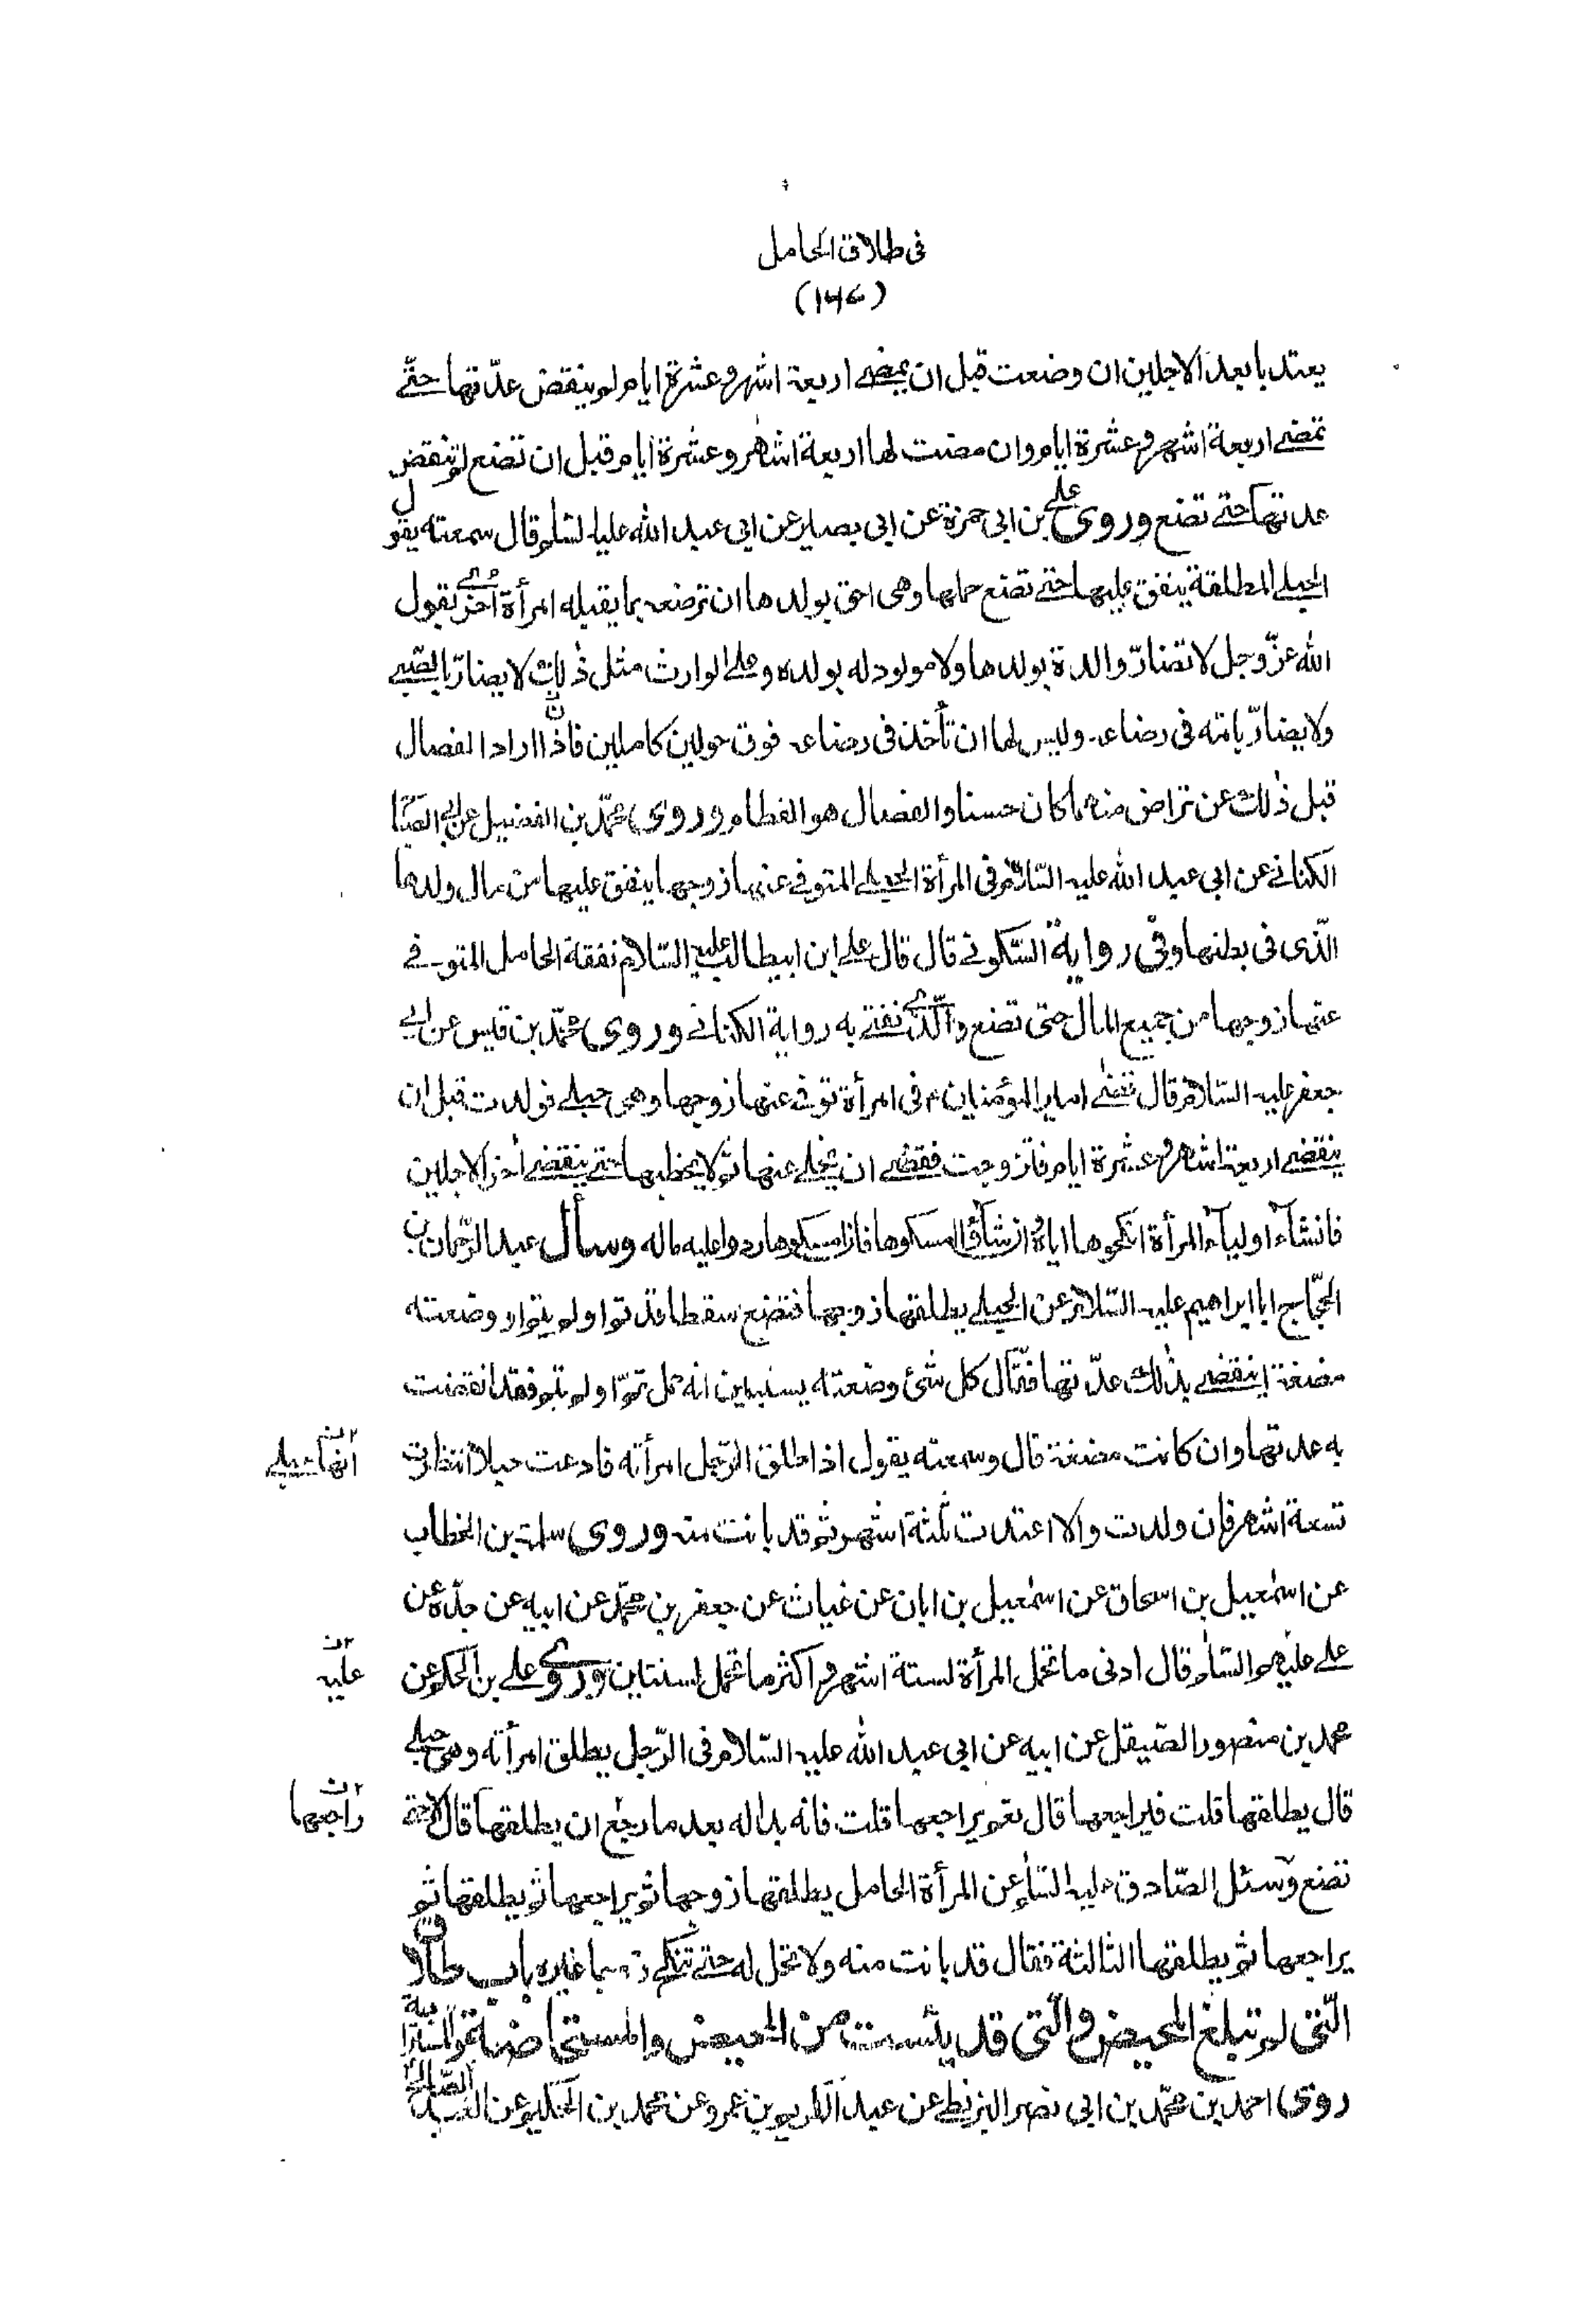 فى طلاق الحامل
(١٤٦)
يعتد بابعد الاجلين ان وضعت قبل ان يمضے اربعة اشهر و عشرة ايام لم ينقض عدّتها حتّے
تمضے اربعة اشهر و عشرة ايام وان مضت لها اربعة اشهر و عشرة ايام قبل ان تضع لم تنقض
عدتها حتے تضع وروى علے بن ابى حمزة عن ابى بصير عن ابى عبد الله عليه السّلم قال سمعته يقول
الحبلے المطلقة ينفق عليها حتے تضع حملها وهى احق بولدها ان ترضعه بما يقبله امرأة اُخرٰے يقول
الله عزّ وجل لا تضارّ والدة بولدها ولا مولود له بولده وعلے الوارث مثل ذٰلك لا يضارّ بالصّبے
ولا يضارّ بامّه فى رضاعه وليس لها ان تأخذ فى رضاعه فوق حولين كاملين فاذا ارادا الفصال
قبل ذٰلك عن تراض منهما كان حسنا والفصال هو الفطام وروى محمّد بن الفضيل عن ابى الصّبّا
الكنانے عن ابى عبد الله عليه السّلام فى المرأة الحبلے المتوفے عنها زوجها ينفق عليها من مال ولدها
الّذى فى بطنها وفى رواية السّكونے قال قال علے ابن ابيطالب عليه السّلام نفقة الحامل المتوفے
عنها زوجها من جميع المال حتى تضع والّذے نفتے به رواية الكنانے وروى محمّد بن قيس عن ابے
جعفر عليه السّلام قال قضٰے امير المؤمنين ع فى امرأة توفے عنها زوجها وهى حبلے فولدت قبل ان
ينقضے اربعة اشهر و عشرة ايام فتزوجت فقضٰے ان يخلے عنها ثم لا يخطبها حتے ينقضے اٰخر الاجلين
فان شآء اولياۤء المرأة انكحوها اياه وان شاۤؤا امسكوها فان امسكوها ردوا عليه ماله وسأل عبد الرّحمان بن
الحجّاج ابا ابراهيم عليه السّلام عن الحبلے يطلقها زوجها فتضع سقطا قد تم او لم يتم او وضعته
مضغة اينقضے بذٰلك عدّتها فقال كل شئ وضعته يستبين انه حمل تمّ او لم يتم فقد انقضت
به عدتها وان كانت مضغة قال وسمعته يقول اذا طلق الرّجل امرأته فادعت حبلا انتظرت
انها حبلے
تسعة اشهر فان ولدت والا اعتدت ثلٰثة اشهر ثم قد بانت منه وروى سلمة بن الخطاب
عن اسمٰعيل بن اسحاق عن اسمٰعيل بن ابان عن غياث عن جعفر بن محمّد عن ابيه عن جدّه عن
علے عليهم السّلم قال ادنى ما تحمل المرأة لستة اشهر و اكثر ما تحمل لسنتين وروٰے علے بن الحكم عن
عليه
محمد بن منصور الصّيقل عن ابيه عن ابى عبد الله عليه السّلام فى الرّجل يطلق امرأته وهى حبلے
قال يطلقها قلت فيراجعها قال نعم يراجعها قلت فانه بدا له بعد ما راجع ان يطلقها قال لا حتے
راجعها
تضع وسئل الصّادق عليه السّلم عن المرأة الحامل يطلقها زوجها ثم يراجعها ثم يطلقها ثم
يراجعها ثم يطلقها الثالثة فقال قد بانت منه ولا تحل له حتے تنكح زوجا غيره باب طلاق
الّتى لم تبلغ المحيض والّتى قد يئست من المحيض والمستحاضة والمسترابة
روى احمد بن محمّد بن ابى نصر البزنطے عن عبد الكريم بن عمرو عن محمد بن الحكيم عن العبد الصّالح